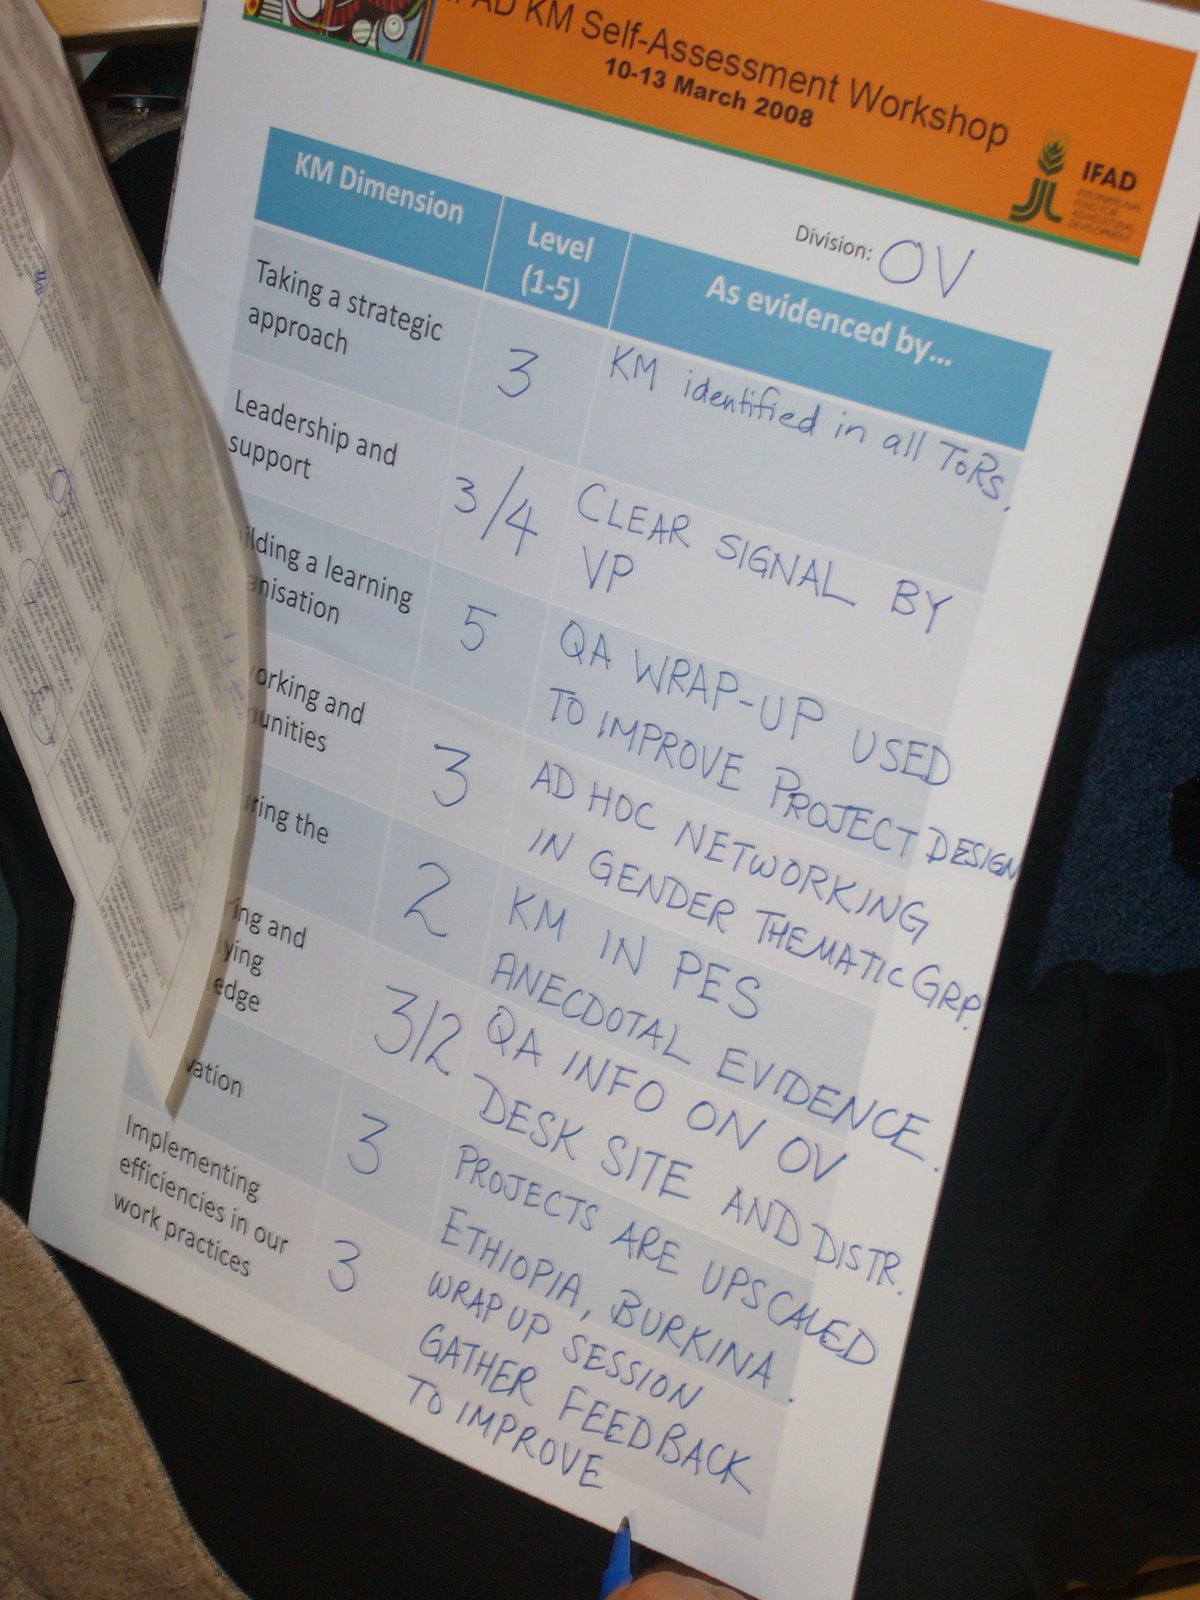 FAD KM Self-Assessment Workshop
10-13 March 2008
IFAD
INTERNATIONAL
FUND FOR
AGRICULTURAL
DEVELOPMENT
Division: OV
KM Dimension
Level
(1-5)
As evidenced by...
Taking a strategic
approach
3
KM identified in all ToRs.
Leadership and
support
3/4
CLEAR SIGNAL BY
VP
ilding a learning
anisation
5
QA WRAP-UP USED
TO IMPROVE PROJECT DESIGN
orking and
unities
3
AD HOC NETWORKING
IN GENDER THEMATIC GRP.
ring the
2
KM IN PES
ANECDOTAL EVIDENCE.
ing and
ying
edge
3/2
QA INFO ON OV
DESK SITE AND DISTR.
vation
3
PROJECTS ARE UPSCALED
ETHIOPIA, BURKINA.
Implementing
efficiencies in our
work practices
3
WRAP UP SESSION
GATHER FEEDBACK
TO IMPROVE